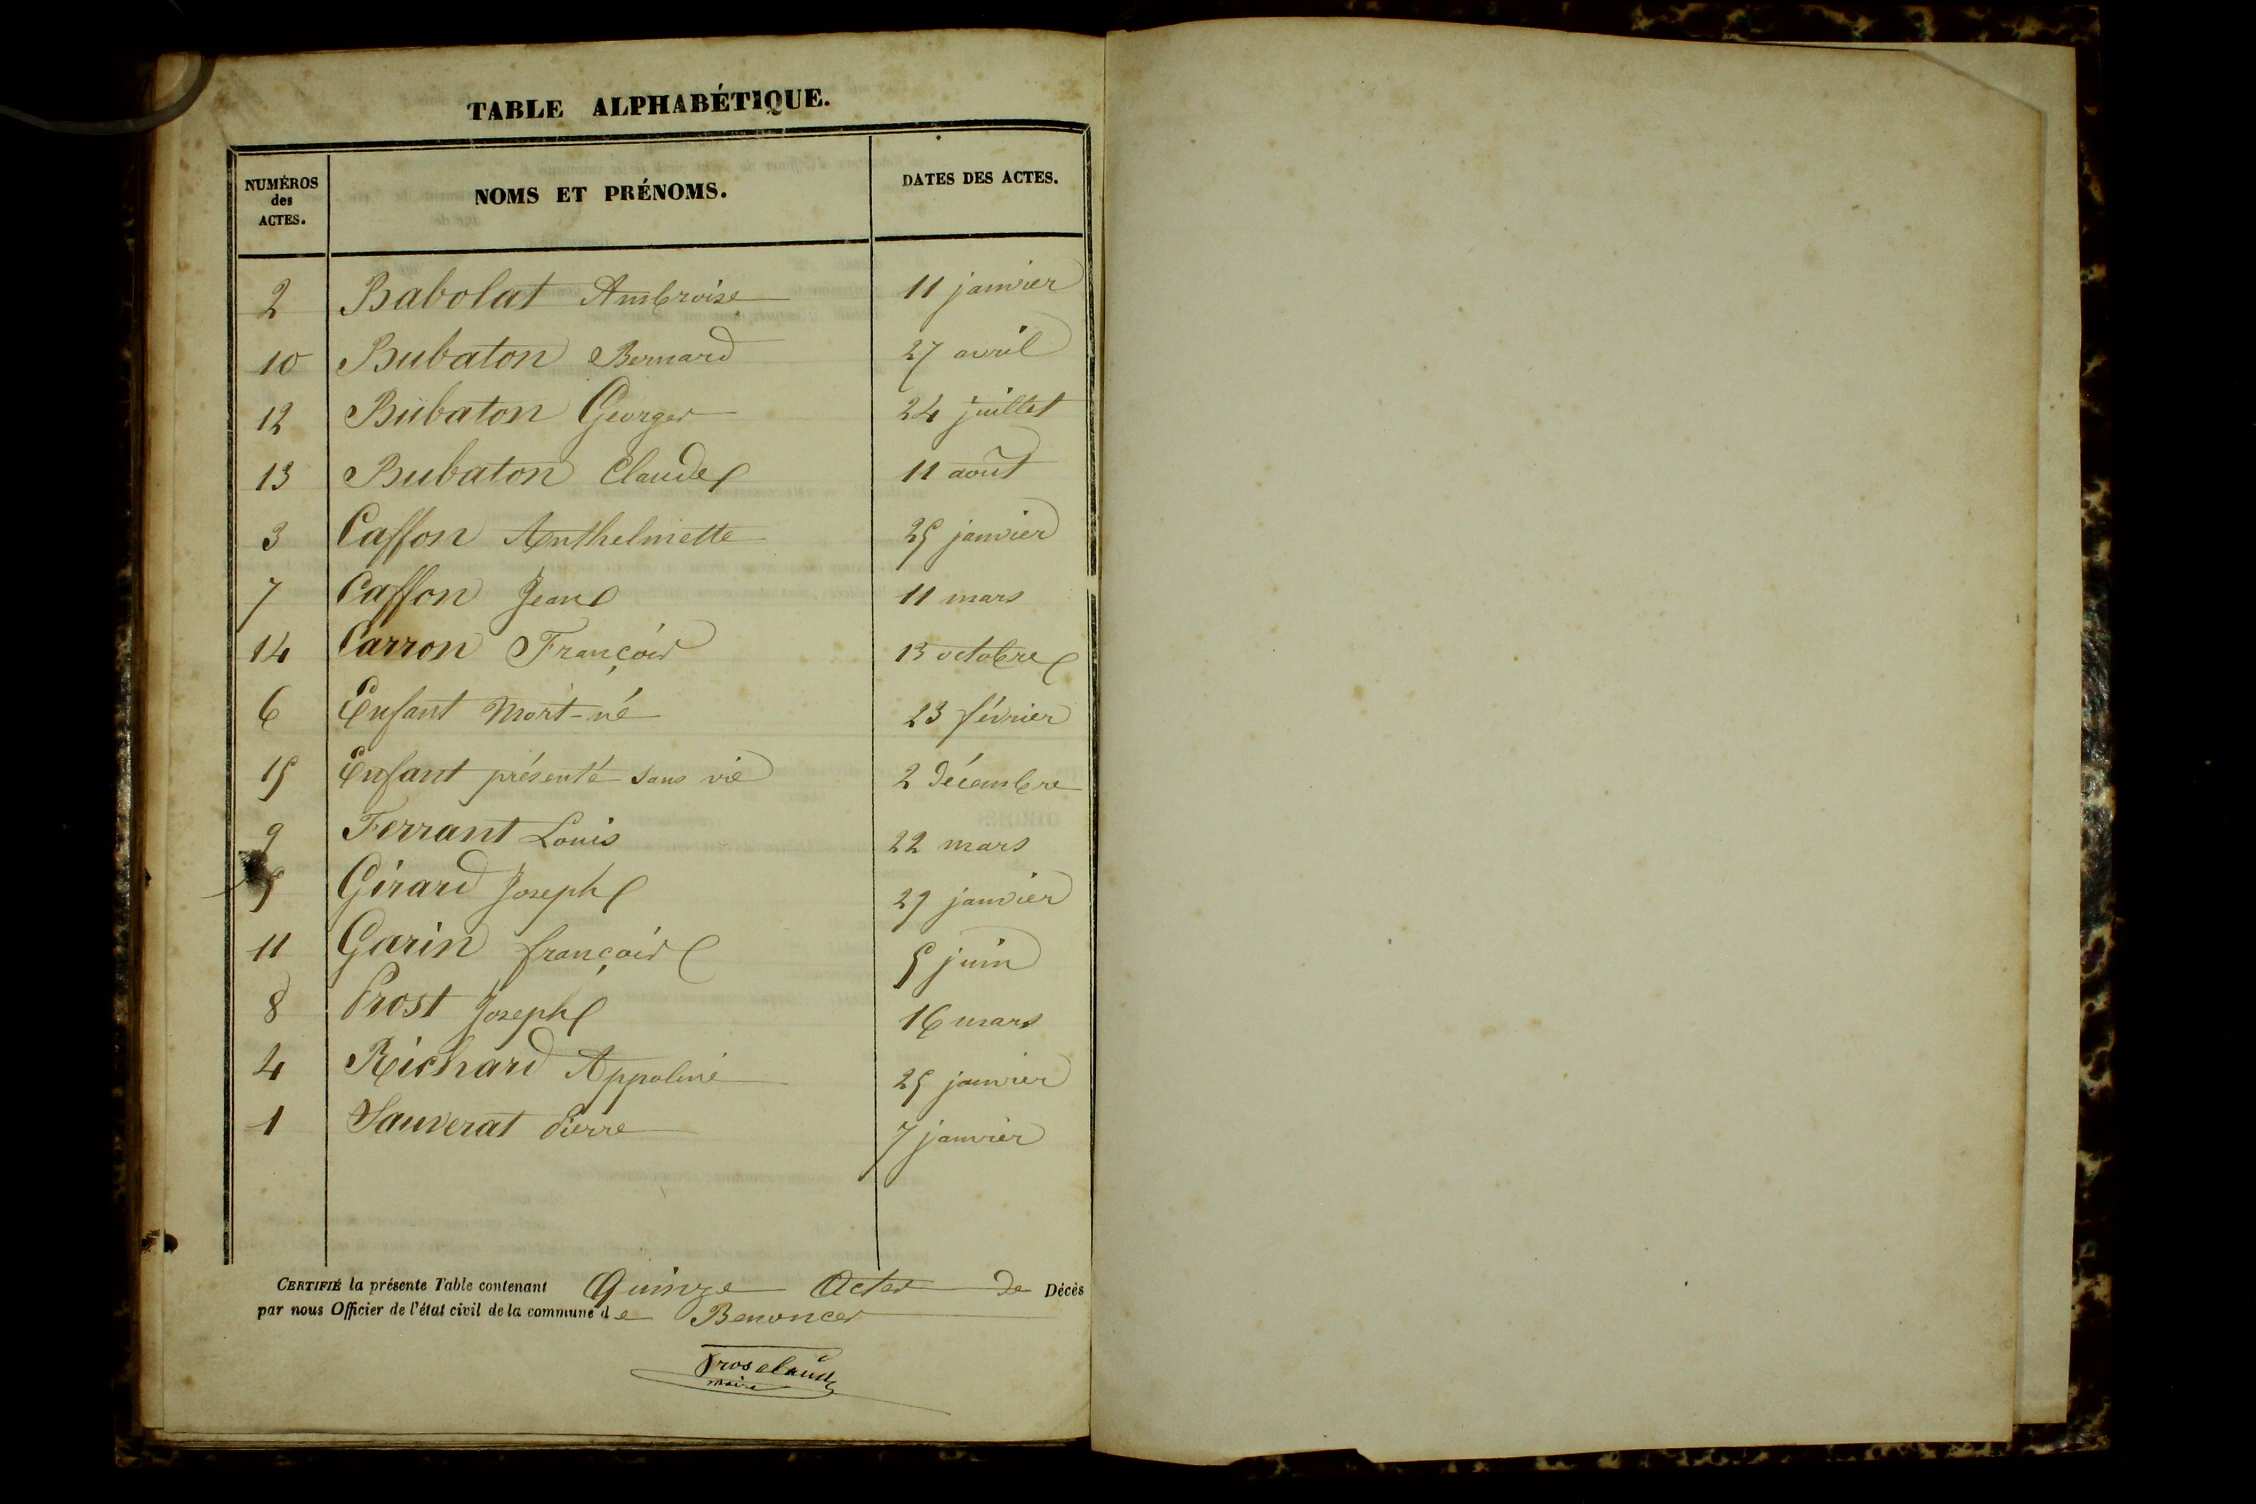 TABLE ALPHABÉTIQUE.
NUMÉROS des ACTES. NOMS ET PRÉNOMS. DATES DES ACTES.
2 Babolat Ambroise 11 janvier
10 Bubaton Bernard 27 avril
12 Bubaton Georges 24 juillet
13 Bubaton Claude 11 août
3 Caffon Anthelmette 25 janvier
7 Caffon Jean 11 mars
14 Carron François 13 octobre
6 Enfant Mort-né 23 février
15 Enfant présenté sans vie 2 Décembre
9 Ferrant Louis 22 mars
5 Girard Joseph 29 janvier
11 Garin françois 5 juin
8 Prost Joseph 16 mars
4 Richard Appoline 25 janvier
1 Sauverat Pierre 7 janvier
CERTIFIÉ la présente Table contenant Quinze Actes de Décès
par nous Officier de l'état civil de la commune de Benonces
maire